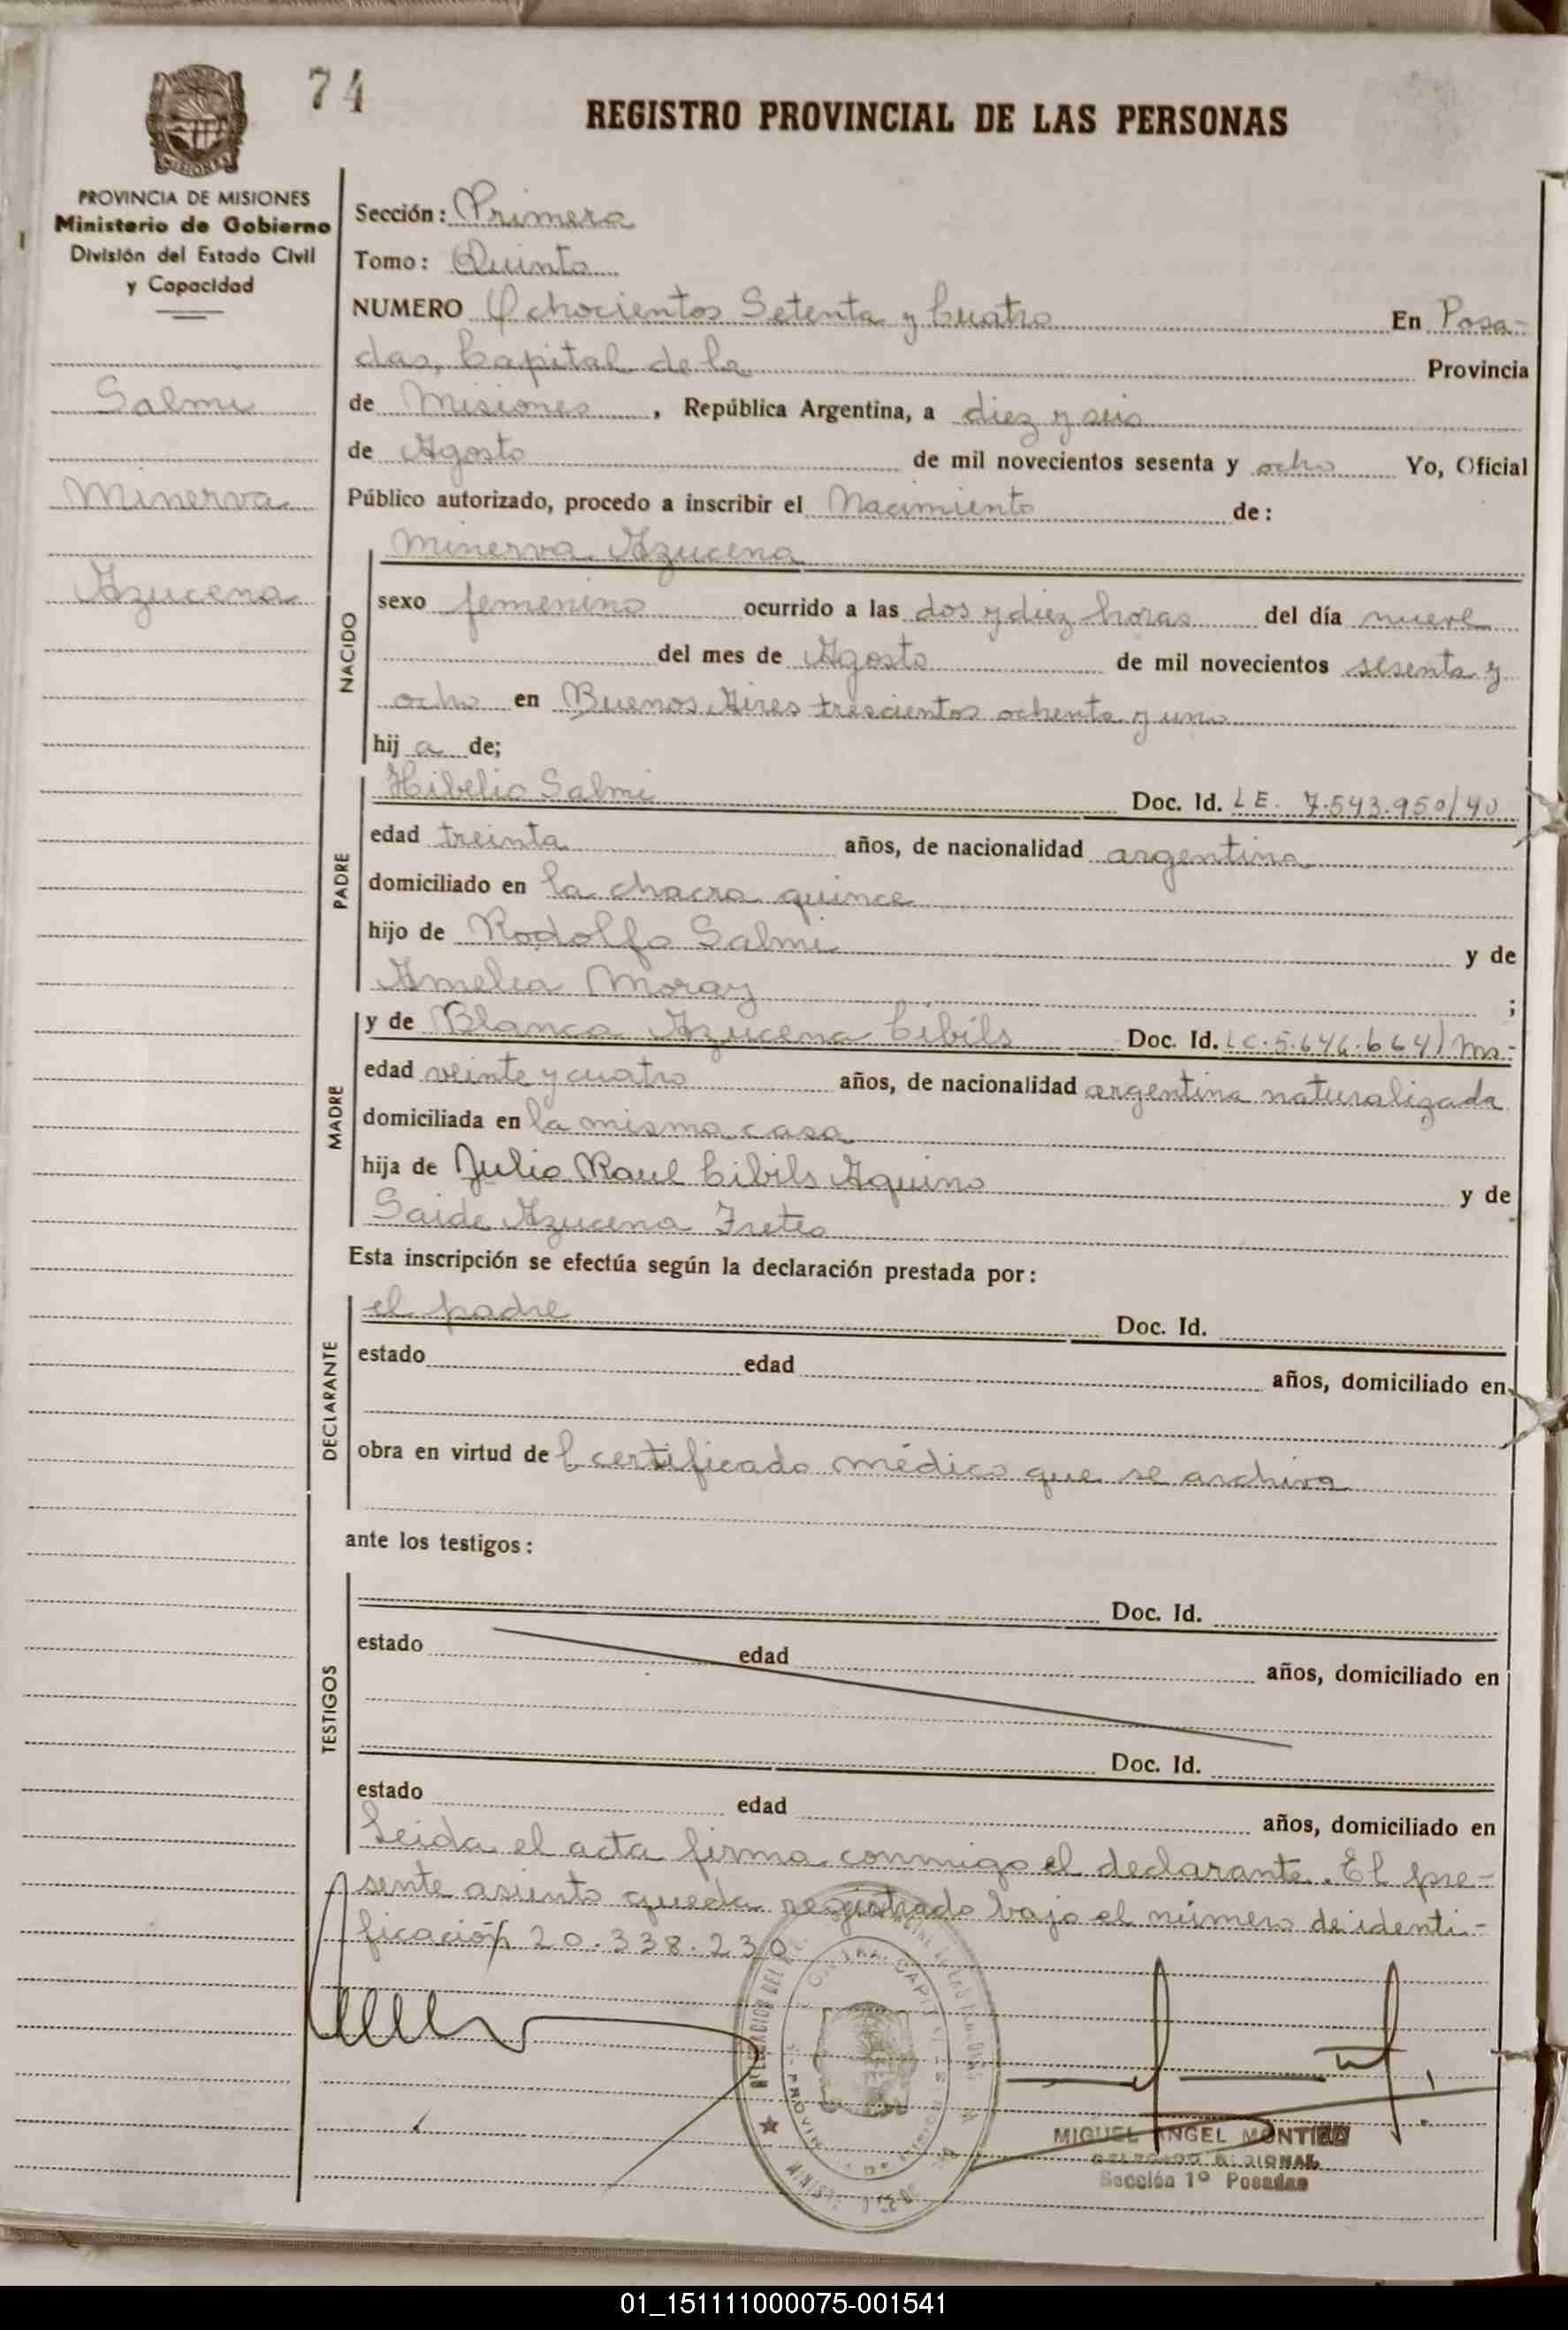 74
REGISTRO PROVINCIAL DE LAS PERSONAS
MISIONES
PROVINCIA DE MISIONES
Ministerio de Gobierno
División del Estado Civil
y Capacidad
Salmi
Minerva
Azucena
Sección: Primera
Tomo: Quinto
NUMERO Ochocientos Setenta y Cuatro En Posa-
das, Capital de la Provincia
de Misiones, República Argentina, a diez y seis
de Agosto de mil novecientos sesenta y ocho Yo, Oficial
Público autorizado, procedo a inscribir el Nacimiento de:
NACIDO
Minerva Azucena
sexo femenino ocurrido a las dos y diez horas del día nueve
del mes de Agosto de mil novecientos sesenta y
ocho en Buenos Aires trescientos ochenta y uno
hij a de;
PADRE
Hibelio Salmi Doc. Id. LE. 7.543.950/40
edad treinta años, de nacionalidad argentina
domiciliado en la chacra quince
hijo de Rodolfo Salmi y de
Amelia Moray ;
MADRE
y de Blanca Azucena Cibils Doc. Id. LC. 5.646.664/ Ms.-
edad veinte y cuatro años, de nacionalidad argentina naturalizada
domiciliada en la misma casa
hija de Julio Raul Cibils Aquino y de
Saide Azucena Fretes
Esta inscripción se efectúa según la declaración prestada por:
DECLARANTE
el padre Doc. Id.
estado edad años, domiciliado en
obra en virtud de l certificado médico que se archiva
ante los testigos:
TESTIGOS
Doc. Id.
estado edad años, domiciliado en
Doc. Id.
estado edad años, domiciliado en
Leida el acta firma conmigo el declarante. El pre-
sente asiento queda registrado bajo el número de identi-
ficación 20.338.230
MIGUEL ANGEL MONTIEL
DELEGADO REGIONAL
Sección 1º Posadas
01_151111000075-001541